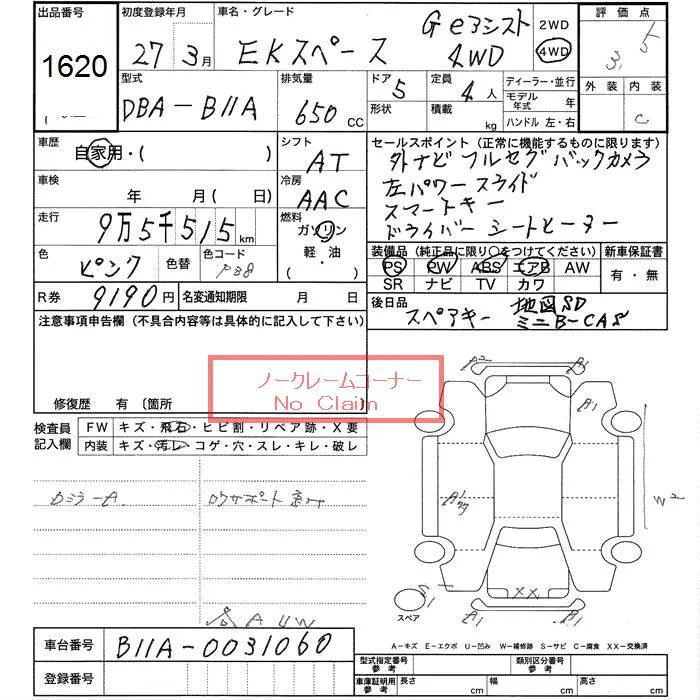 出品番号
1620
初度登録年月
27年3月
車名・グレード
EKスペース
Ge アシスト
4WD
2WD
4WD
評価点
3.5
外装 内装
C
型式
DBA-B11A
排気量
650 CC
ドア 5
形状
定員 4人
積載 kg
ディーラー・並行
モデル年式 年
ハンドル 左・右
車歴
自家用・( )
シフト
AT
セールスポイント (正常に機能するものに限ります)
外ナビ フルセグ バックカメラ
左パワースライド
スマートキー
ドライバーシートヒーター
車検
年 月(日)
冷房
AAC
走行
9万5千515km
燃料
ガソリン
軽・油
( )
色
ピンク
色替
色コード
P38
装備品 (純正品に限り○をつけてください)
PS PW ABS エアB AW
SR ナビ TV カワ
新車保証書
有・無
R券
9190円
名変通知期限 月 日
後日品
スペアキー 地図SD
ミニB-CAS
注意事項申告欄 (不具合内容等は具体的に記入して下さい)
ノークレームコーナー
No Claim
修復歴 有 〔箇所
検査員記入欄
FW キズ・飛石・ヒビ割・リペア跡・X要
内装 キズ・汚レ・コゲ・穴・スレ・キレ・破レ
カミラーA
ロアサポート
A4W
A2
B1
B1
A1
A1
スペア
A1
B1
XX
車台番号
B11A-0031060
登録番号
A-キズ E-エクボ U-凹み W-補修跡 S-サビ C-腐食 XX-交換済
型式指定番号 参考
類別区分番号 参考
車庫証明用 参考
長さ cm
幅 cm
高さ cm